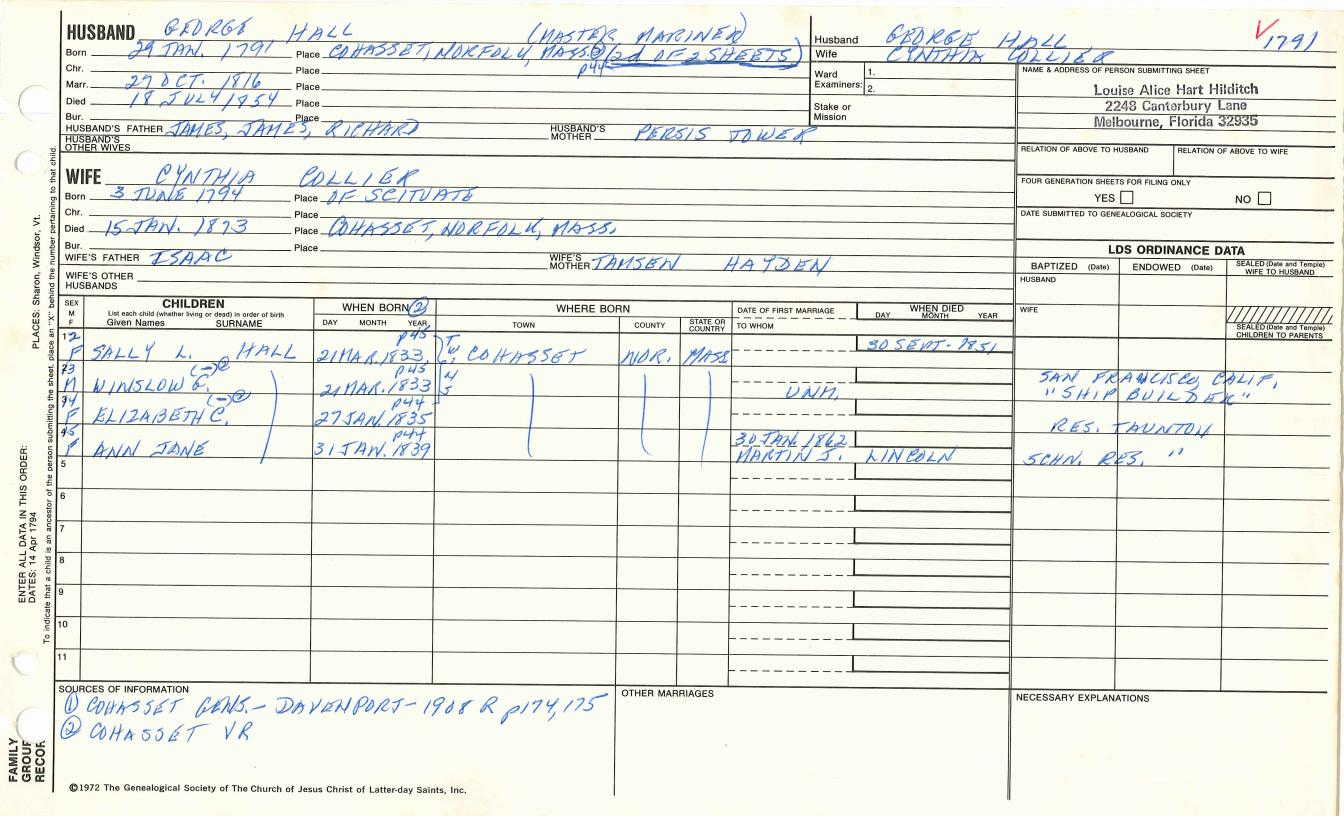 HUSBAND GEORGE HALL (MASTER MARINER)
Born 29 JAN. 1791 Place COHASSET, NORFOLK, MASS ② (2d OF 2 SHEETS)
p44
Chr. Place
Marr. 27 OCT. 1816 Place
Died 18 JULY 1854 Place
Bur. Place
HUSBAND'S FATHER JAMES, JAMES, RICHARD HUSBAND'S MOTHER PERSIS TOWER
HUSBAND'S OTHER WIVES
Husband GEORGE HALL V 1791
Wife CYNTHIA COLLIER
Ward Examiners: 1.
2.
Stake or Mission
NAME & ADDRESS OF PERSON SUBMITTING SHEET
Louise Alice Hart Hilditch
2248 Canterbury Lane
Melbourne, Florida 32935
RELATION OF ABOVE TO HUSBAND RELATION OF ABOVE TO WIFE
FOUR GENERATION SHEETS FOR FILING ONLY
YES NO
DATE SUBMITTED TO GENEALOGICAL SOCIETY
WIFE CYNTHIA COLLIER
Born 3 JUNE 1794 Place OF SCITUATE
Chr. Place
Died 15 JAN. 1873 Place COHASSET, NORFOLK, MASS.
Bur. Place
WIFE'S FATHER ISAAC WIFE'S MOTHER TAMSEN HAYDEN
WIFE'S OTHER HUSBANDS
LDS ORDINANCE DATA
BAPTIZED (Date) ENDOWED (Date) SEALED (Date and Temple) WIFE TO HUSBAND
HUSBAND
WIFE
SEALED (Date and Temple) CHILDREN TO PARENTS
SEX M F
CHILDREN
List each child (whether living or dead) in order of birth
Given Names SURNAME
WHEN BORN ②
DAY MONTH YEAR
WHERE BORN
TOWN COUNTY STATE OR COUNTRY
DATE OF FIRST MARRIAGE
TO WHOM
WHEN DIED
DAY MONTH YEAR
12 p45
F SALLY L. HALL 21 MAR. 1833 TWINS COHASSET NOR. MASS 30 SEPT. 1851
23 (-)② p45
M WINSLOW G. 21 MAR. 1833 UNM. SAN FRANCISCO, CALIF. "SHIP BUILDER"
34 (-)② p44
F ELIZABETH C. 27 JAN. 1835 RES. TAUNTON
45 p44
F ANN JANE 31 JAN. 1839 30 JAN. 1862
MARTIN J. LINCOLN SCHN. RES. "
5
6
7
8
9
10
11
SOURCES OF INFORMATION
① COHASSET GENS. - DAVENPORT - 1908 R p174, 175
② COHASSET VR
OTHER MARRIAGES
NECESSARY EXPLANATIONS
©1972 The Genealogical Society of The Church of Jesus Christ of Latter-day Saints, Inc.
FAMILY GROUP RECOR
ENTER ALL DATA IN THIS ORDER:
DATES: 14 Apr 1794
PLACES: Sharon, Windsor, Vt.
To indicate that a child is an ancestor of the person submitting the sheet, place an "X" behind the number pertaining to that child.